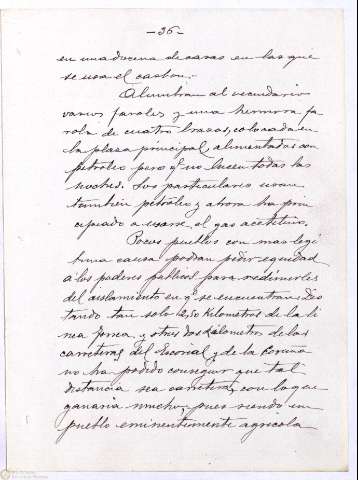 -36-
en una docena de casas en las que
se usa el carbón.
Alumbran al vecindario
varios faroles y una hermosa fa
rola de cuatro brazos, colocada en
la plaza principal, alimentados con
petróleo pero q. no lucen todas las
noches. Los particulares usan
también petróleo y ahora ha prin
cipiado a usarse el gas acetileno.
Pocos pueblos con mas legí
tima causa podrán pedir equidad
a los poderes públicos para redimirles
del aislamiento en q. se encuentran. Dis
tando tan solo 12,50 kilometros de la lí
nea y otros dos kilómetros de las
carreteras del Escorial y de la Coruña
no ha podido conseguir que tal
distancia sea carretera, con la que
ganaria mucho, pues siendo un
pueblo eminentemente agricola